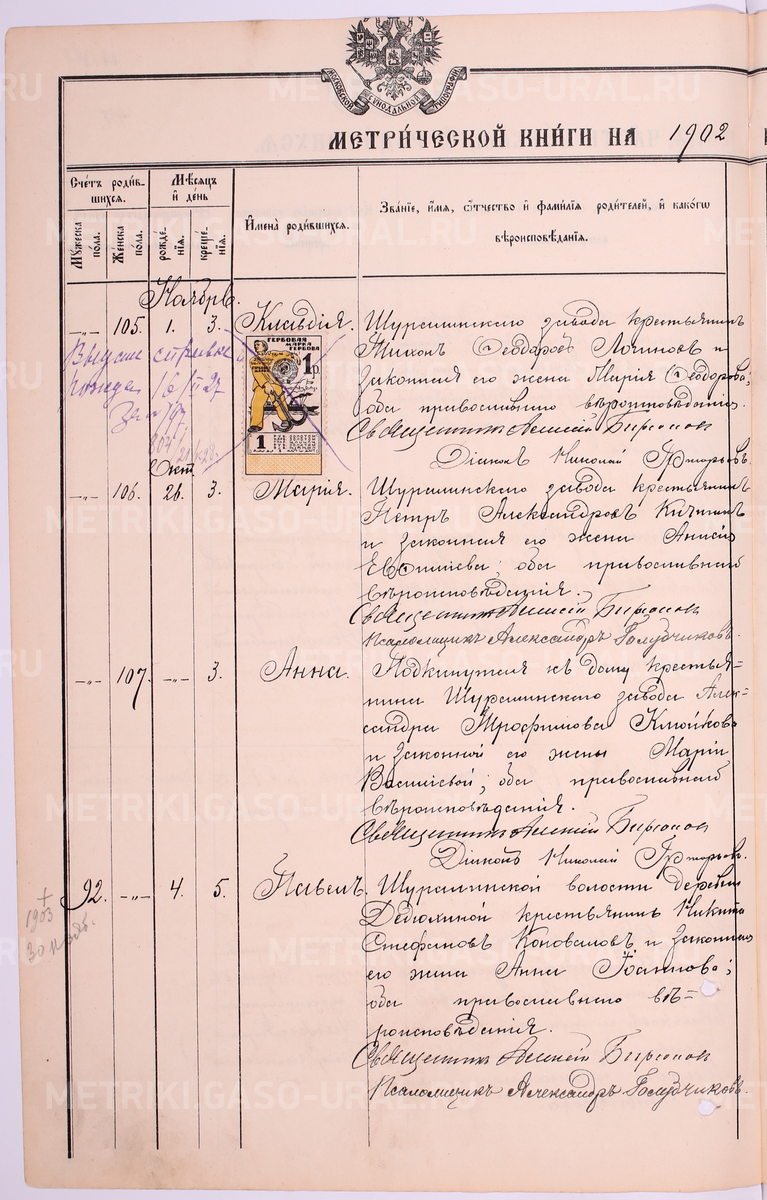 МОСКОВСКОЙ СѴНОДАЛЬНОЙ ТИПОГРАФІИ
МЕТРИ́ЧЕСКОЙ КНИ́ГИ НА 1902
Сче́тъ роди́в-
шихся.
Мꙋ́жеска
по́ла.
Же́нска
по́ла.
Мѣ́сяцъ
и҆ де́нь
рожде-
нїя.
креще-
нїя.
И҆мена̀ роди́вшихся.
Зва́нїе, и҆́мя, ѻ҆́тчество и҆ фами́лїя роди́телей, и҆ како́гѡ
вѣроисповѣ́данїя.
Ноябрь.
-„- 105. 1. 3. Клавдія. Шуралинскаго завода крестьянинъ
Тихонъ Ѳеодоровъ Логиновъ и
законная его жена Марія Ѳеодорова;
оба православнаго вѣроисповѣданія.
Священникъ Алексій Бирюков
Діаконъ Николай
ГЕРБОВАЯ
МАРКА
1 р.
1
16 27
Окт.
-„- 106. 26. 3. Марія. Шуралинскаго завода крестьянинъ
Петръ Александровъ
и законная его жена Анисія
оба православнаго
вѣроисповѣданія.
Священникъ Алексій Бирюков
Псаломщикъ Александръ Голубчиковъ.
-„- 107. -„- 3. Анна. Подкинутая къ дому крестья=
нина Шуралинскаго завода Алек-
сандра Трофимова Клюйкова
и законной его жены Маріи
Васильевой; оба православнаго
вѣроисповѣданія.
Священникъ Алексій Бирюков
Діаконъ Николай
92. -„- 4. 5. Павелъ. Шуралинской волости деревни
Дедюхиной крестьянинъ Никита
Стефановъ Коновалов и законная
его жена Анна Іоаннова;
оба православнаго вѣ=
роисповѣданія.
Священникъ Алексій Бирюков
Псаломщикъ Александръ Голубчиковъ.
1903
METRIKI.GASO-URAL.RU